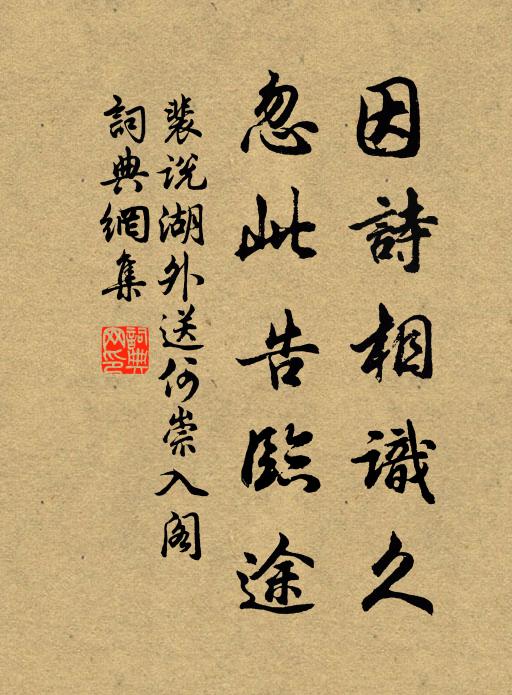 因詩相識久
忽此告臨途
裴说湖外送何崇入阁
詞典網集
詞典
网印